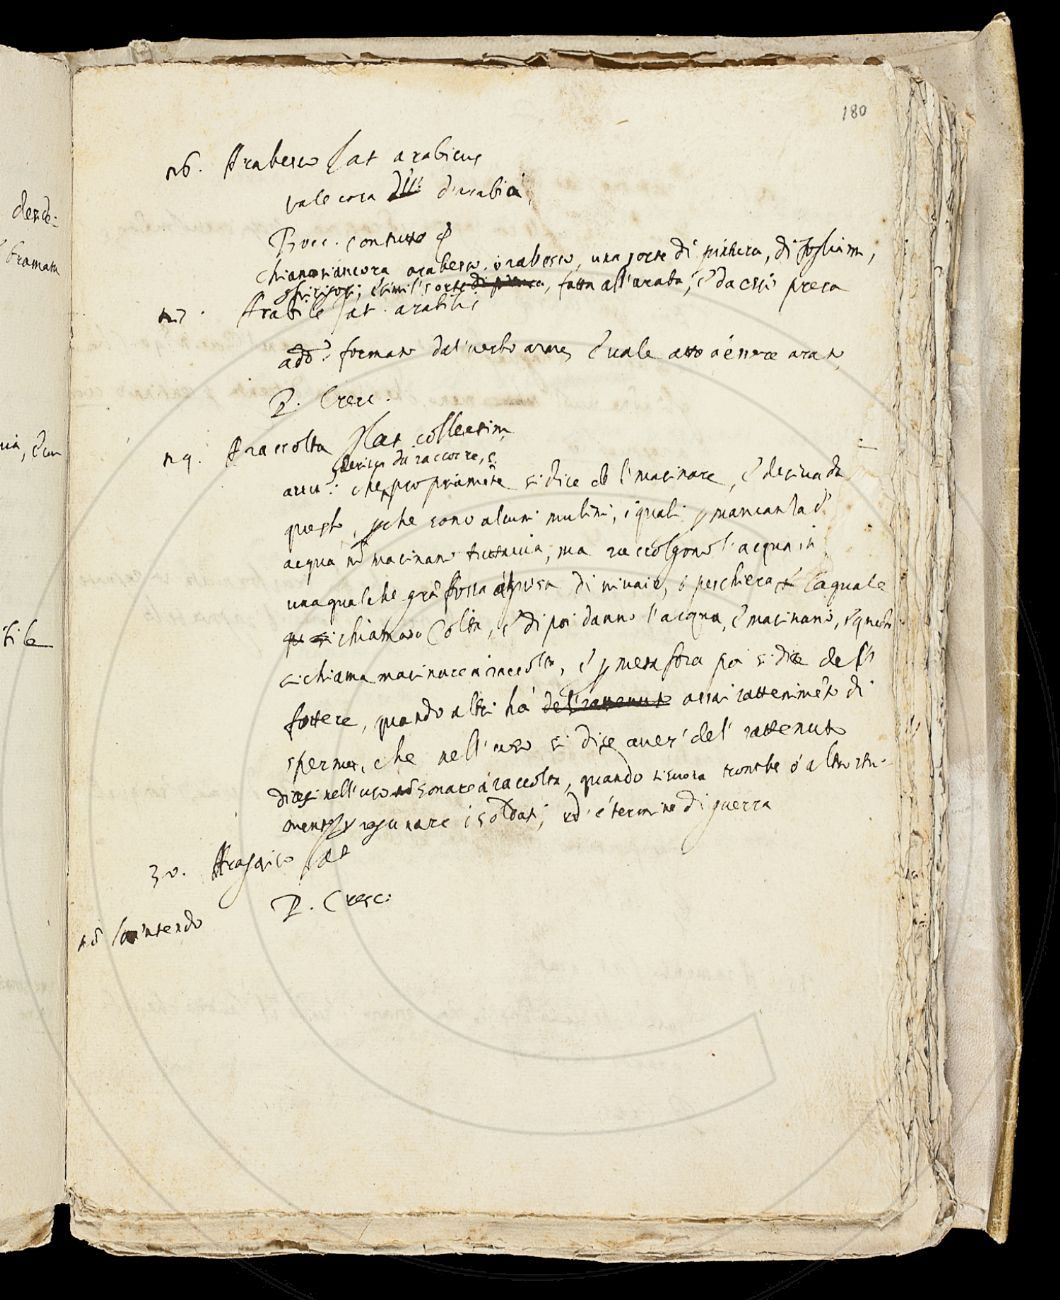 180
26. Arabesco lat arabicus
vale cosa d'arabia,
Bocc.
chiamasi ancora arabesco, o rabesco, una sorte di pittura, di fogliami,
fatta all'araba, è da essi presa
27. Arabile lat. arabilis
add.º formato dal verbo arare, è vale atto a essere arato
P. Cresc.
29. A raccolta lat. collectim
deriva da raccorre, e
che propriamẽte si dice del macinare, è deriva da
questo, che sono alcuni mulini, i quali p mancanza d'
acqua nõ macinano tuttavia, ma raccolgono l'acqua in
una qualche grã fossa à guisa di vivaio, ò peschiera la quale
si chiamano Colta, è di poi danno l'acqua, è macinano, è questo
si chiama macinare a raccolta, è p metafora poi si dice del
fottere, quando altri hà del rattenuto assai rattenimẽto di
sperma, che nell'uso si dice aver del rattenuto
dicesi nell'uso sonare à raccolta, quando si suona trombe ò altro stru-
mento p ragunare i soldati, ed è termine di guerra
30. lat
P. Cresc.
intendo